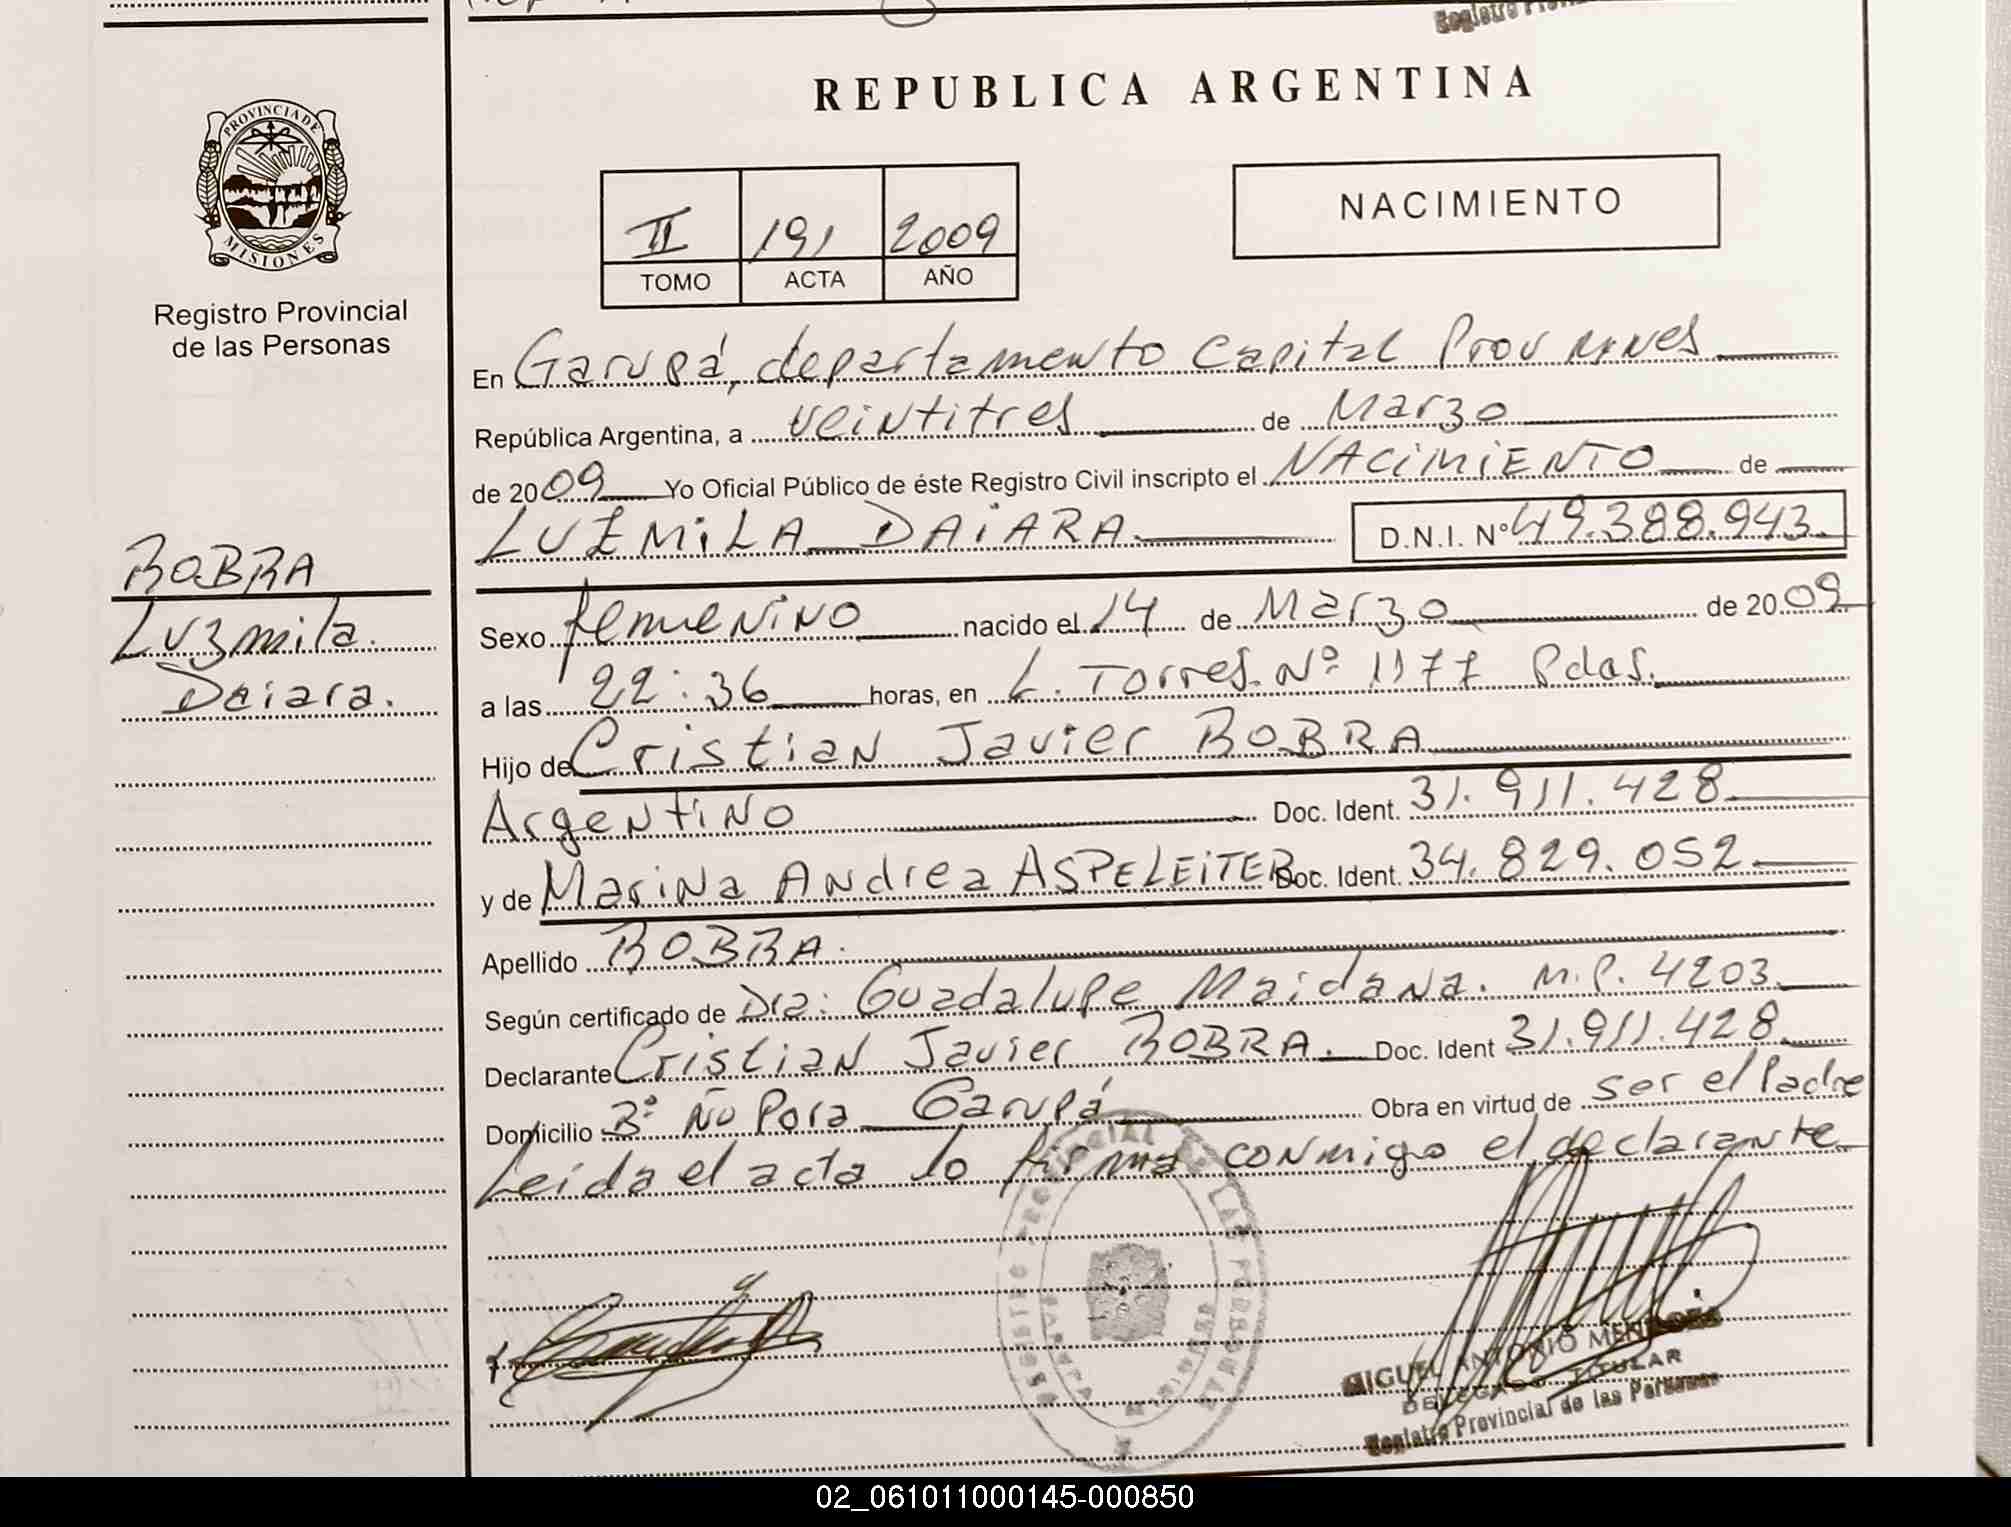 REPUBLICA ARGENTINA
PROVINCIA DE
MISIONES
Registro Provincial
de las Personas
II 191 2009
TOMO ACTA AÑO
NACIMIENTO
En Garupá, departamento Capital Prov Mnes
República Argentina, a veintitres de Marzo
de 2009 Yo Oficial Público de éste Registro Civil inscripto el NACIMIENTO de
LUZMILA DAIARA D.N.I. Nº 49.388.943.
BOBRA
Luzmila.
Daiara.
Sexo femenino nacido el 14 de Marzo de 2009
a las 22:36 horas, en L. Torres. Nº 1177 Pdas.
Hijo de Cristian Javier BOBRA
Argentino Doc. Ident. 31.911.428.
y de Marina Andrea ASPELEITER Doc. Ident. 34.829.052
Apellido BOBRA.
Según certificado de Dra: Guadalupe Maidana. M.P. 4203.
Declarante Cristian Javier BOBRA. Doc. Ident 31.911.428.
Domicilio Bº Ñu Pora Garupá Obra en virtud de ser el Padre
Leida el acta lo firma conmigo el declarante
MIGUEL ANTONIO
DELEGADO TITULAR
Registro Provincial de las Personas
02_061011000145-000850